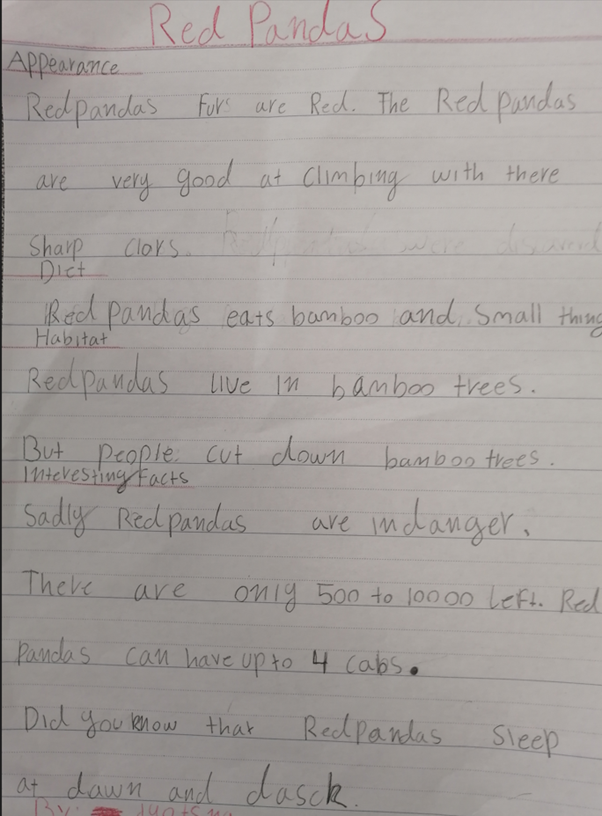 Red Pandas
Appearance
Redpandas Furs are Red. The Red pandas
are very good at climbing with there
Sharp clors.
Diet
Red pandas eats bamboo and small thing
Habitat
Redpandas live in bamboo trees.
But people cut down bamboo trees.
Interesting Facts
Sadly Redpandas are indanger.
There are only 500 to 10000 left. Red
pandas can have up to 4 cabs.
Did you know that Redpandas sleep
at dawn and dasck.
By: